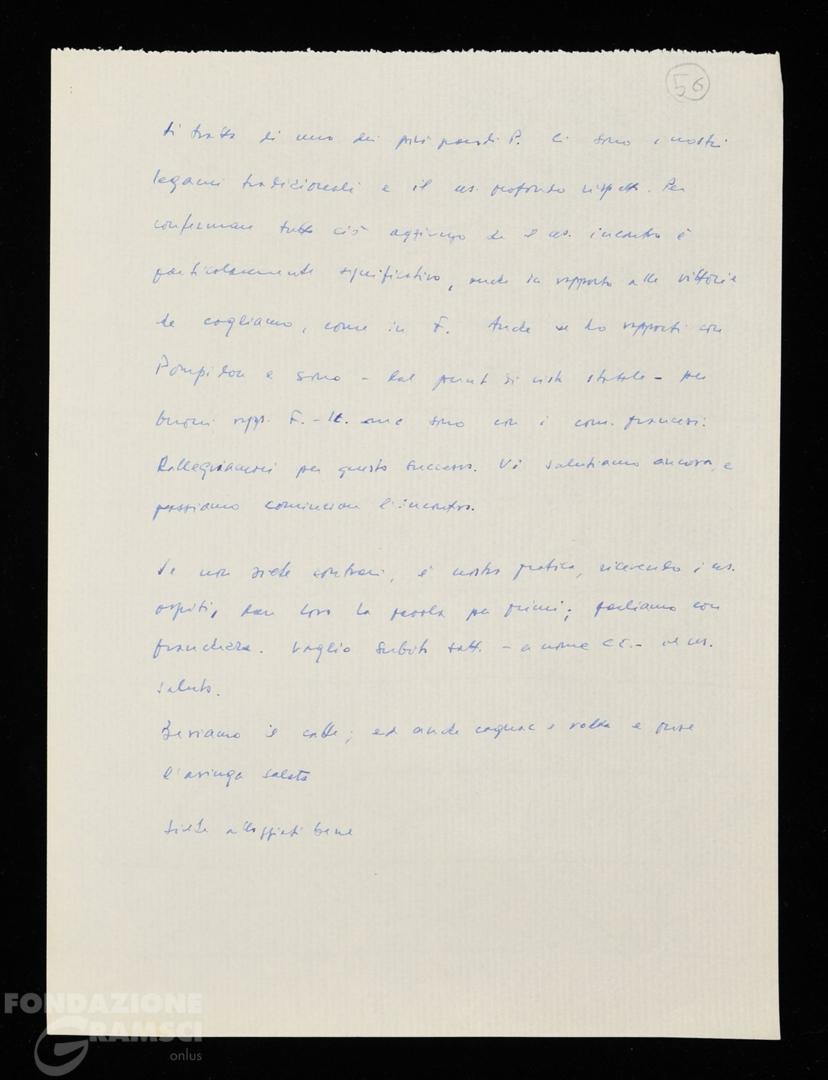 56
si tratta di uno dei più grandi P. Ci sono i nostri
legami tradizionali e il ns. profondo rispetto. Per
confermare tutto ciò aggiungo che il ns. incontro è
particolarmente significativo, anche in rapporto alle vittorie
che cogliamo, come in F. Anche se ho rapporti con
Pompidou e sono - dal punt di vista statale - per
buoni rapp. F.-It. sono con i com. francesi.
Rallegriamoci per questo successo. Vi salutiamo ancora, e
possiamo cominciare l'incontro.
Se non siete contrari, è nostra pratica, ricevendo i ns.
ospiti, dare loro la parola per primi; parliamo con
franchezza. Voglio subito - a nome CC. - il ns.
saluto.
Beviamo il caffè; ed anche cognac e vodka e pure
l'aringa salata
Siete alloggiati bene
FONDAZIONE
GRAMSCI
onlus